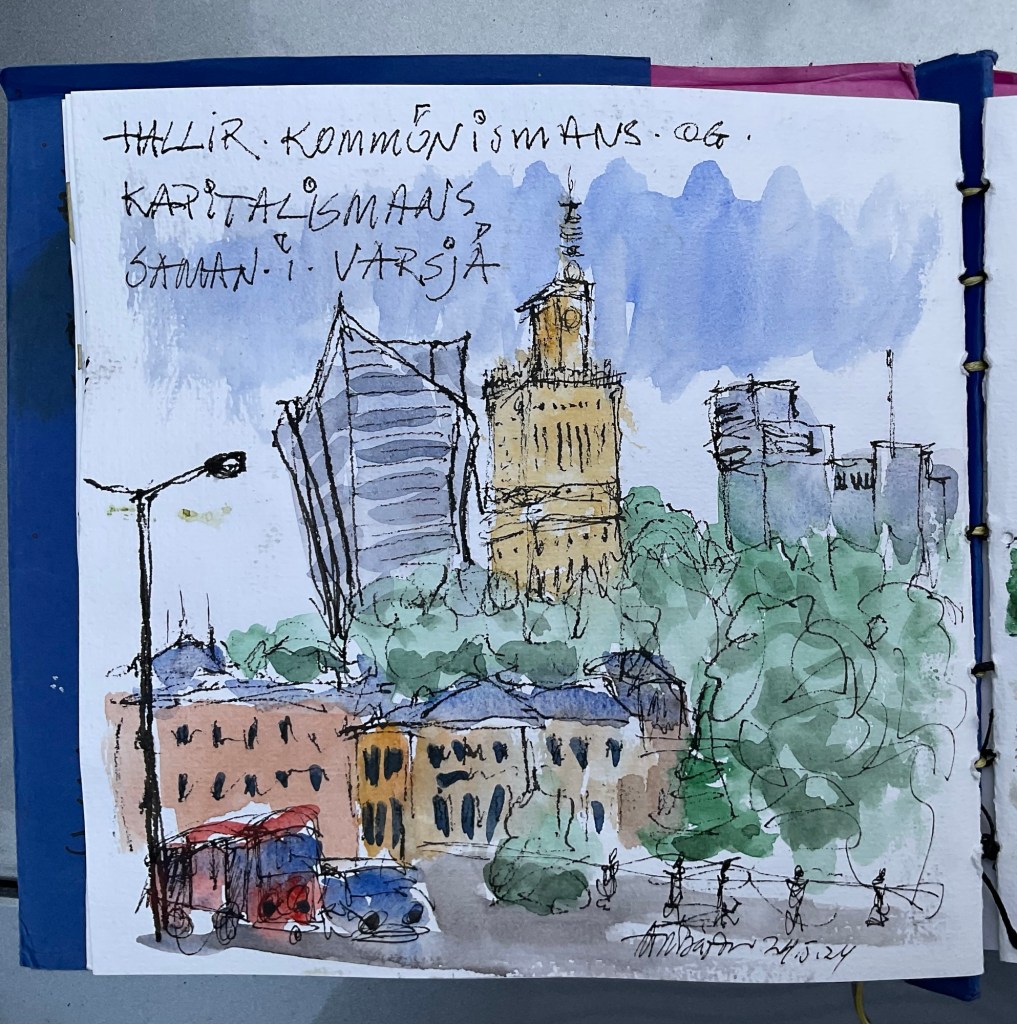 HALLIR. KOMMÚNISMANS. OG.
KAPITALISMANS
SAMAN. Í. VARSJÁ
24.5.24